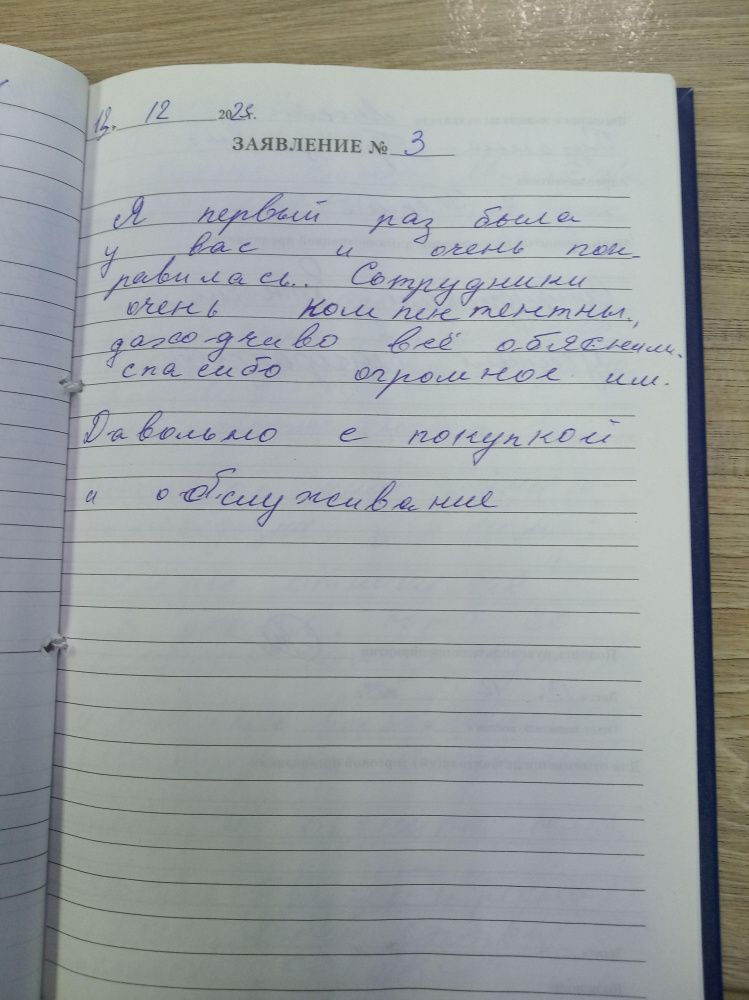 12 2025г.
ЗАЯВЛЕНИЕ № 3
Я первый раз была
у вас и очень пон-
равилась.. Сотрудники
очень компентентны,
даходчиво всё обяснили.
спасибо огромное им.
Давольно с покупкой
и обслуживание